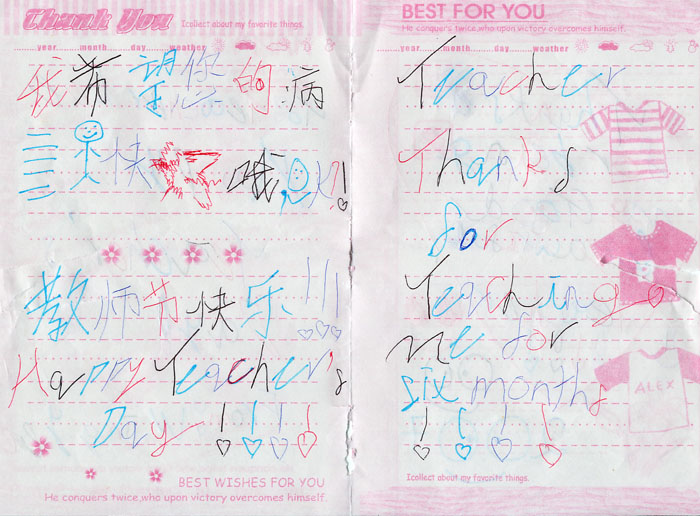 Thank You
Icollect about my favorite things.
........year.......month.......day.......weather
我希望您的病
快 哦 OK?!
教师节快乐!!!
Happy Teacher's
Day!!!!
BEST WISHES FOR YOU
He conquers twice,who upon victory overcomes himself.
BEST FOR YOU
He conquers twice,who upon victory overcomes himself.
........year.......month.......day.......weather
Teacher
Thanks
for
Teaching
me for
six months
!!!!
ALEX
Icollect about my favorite things.